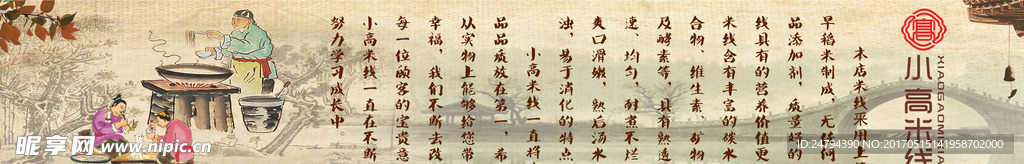 小高米线
XIAOGAOMI
本店米线采用上
早稻米制成，无任何
品添加剂，质量好的
线具有的营养价值更
米线含有丰富的碳水
合物、维生素、矿物
及酵素等，具有熟透
速、均匀，耐煮不烂
爽口滑嫩，熟后汤水
浊，易于消化的特点
小高米线一直将
品品质放在第一，希
从实物上能够给您带
幸福，我们不断去改
每一位顾客的宝贵意
小高米线一直在不断
努力学习成长中。
昵享网 www.nipic.cn
ID:24794390 NO:20170515141958702000